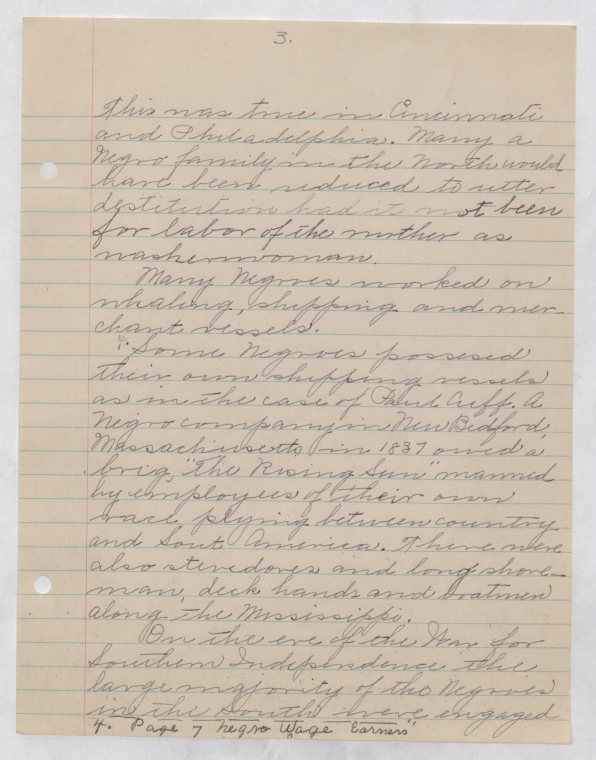 3.
This was true in Cincinnati
and Philadelphia. Many a
Negro family in the North would
have been reduced to utter
destitution had it not been
for labor of the mother as
washerwoman.
Many Negroes worked on
whaling, shipping and mer-
chant vessels.
4. Some Negroes possesed
their own shipping vessels
as in the case of Paul Cuff. A
Negro company in New Bedford,
Massachusetts in 1837 owed a
brig, "The Rising Sun" manned
by employees of their own
race, plying between country
and Sout America. There were
also stevedores and long shore-
man, deck hands and boatmen
along the Mississippi.
On the eve of the War for
Southern Independence the
large majority of the Negroes
in the South were engaged
4. Page 7 Negro Wage Earners"